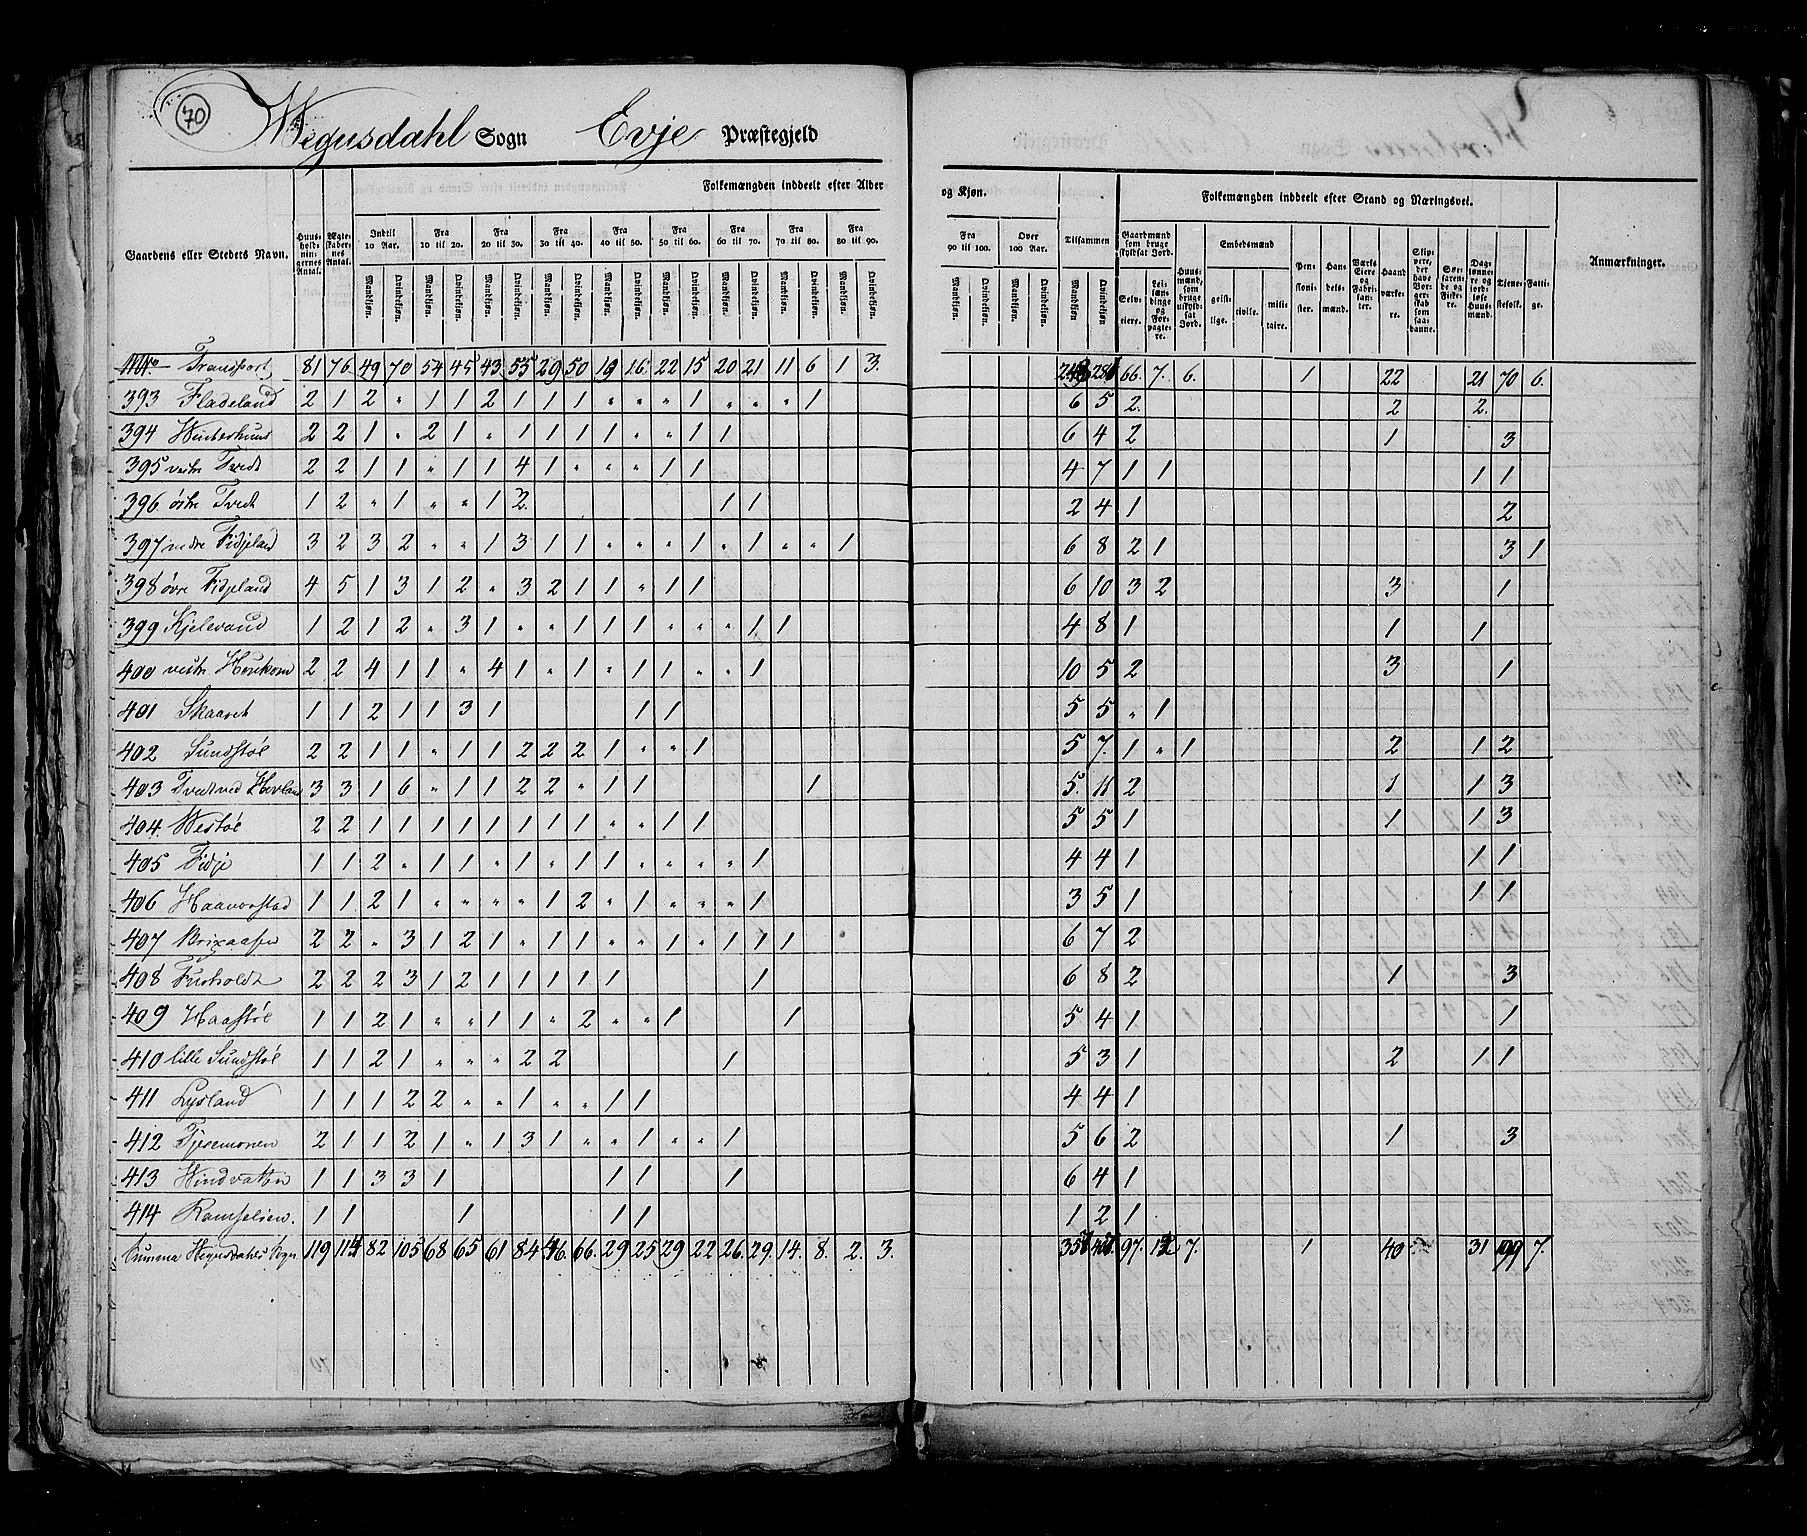 70
Wegusdahl Sogn Evje Præstegjeld
Folkemængden inddeelt efter Alder og Kjøn.
Folkemængden inddeelt efter Stand og Næringsvei.
Gaardens eller Stedets Navn.
Huusholdningernes Antal.
Ægteskabernes Antal.
Indtil 10 Aar.
Fra 10 til 20.
Fra 20 til 30.
Fra 30 til 40.
Fra 40 til 50.
Fra 50 til 60.
Fra 60 til 70.
Fra 70 til 80.
Fra 80 til 90.
Fra 90 til 100.
Over 100 Aar.
Tilsammen
Mandkjøn. Qvindekjøn.
Gaardmænd som bruge skyldsat Jord.
Selveiere.
Leilændinge og Forpagtere.
Huusmænd, som bruge uskyldsat Jord.
Embedsmænd
geistlige. civile. militaire.
Pensionister.
Handelsmænd.
Værks Eiere og Fabrikanter.
Haandværkere.
Skippere, der have Borgerskab som saadanne.
Søefarende og Fiskere.
Daglønnere og jordløse Huusmænd.
Tjenestefolk.
Fattige.
Anmærkninger.
Transport 81 76 49 70 54 45 43 55 29 50 19 16 22 15 20 21 11 6 1 3. 66. 7. 6. 1 22 21 70 6.
393 Fladeland 2 1 2 " 1 1 2 1 1 1 " " " 1 " " " 1 6 5 2. 2 2.
394 Winterhuus 2 2 1 " 2 1 " 1 1 1 1 " " 1 1 6 4 2 1 3
395 vestre Tvedt 2 2 1 1 " 1 1 4 1 " " " 1 1 4 7 1 1 1 1
396 østre Tvedt 1 2 " 1 " " 1 2. 1 1 2 4 1 2
397 nedre Fidjeland 3 2 3 2 " " 1 3 1 1 " " " 1 " 1 " " 1 6 8 2 1 3 1
398 øvre Fidjeland 4 5 1 3 1 2 " 3 2 1 1 " 1 1 6 10 3 2 3 1
399 Kjelevand 1 2 1 2 " 3 1 " " 1 1 1 " " " 1 1 4 8 1 1 1
400 vestre Hovekom 2 2 4 1 1 " 4 1 " 1 " 1 1 " " 1 10 5 2 3 1
401 Skaaret 1 1 2 1 1 3 1 1 1 5 5 " 1
402 Sundstøl 2 2 1 1 " 1 1 2 2 2 1 " " 1 5 7. 1 " 1 2 1 2
403 Tvedt ved Hovland 3 3 1 6 " 1 1 2 2 " 1 1 1 5. 11 2 1 1 3
404. Westøl 2 2 1 1 1 1 1 1 1 1 " " 1 1 5 5 1 1 1 3
405 Fidje 1 1 2 " 1 1 " 1 " 1 1 " " " " 1 4 4 1 1 1
406 Haavorstad 1 1 2 1 " " " " 1 2 " 1 " " " 1 3 5 1 1 1
407 Brixaasen 2 2 " 3 1 2 1 " 1 1 " " 1 " 1 1 1 6 7 2
408 Furholdt 2 2 2 3 1 2 1 1 1 1 1 1 6 8 2 1 3
409 Haastøl 1 1 2 1 " " 1 1 " 2 " " 1 1 5 4 1 1
410 lille Sundstøl 1 1 2 1 " " " 2 2 1 5 3 1 2 1 1
411 Lysland 1 1 1 2 2 " " 1 " " 1 1 4 4 1
412 Tjesemonen 2 1 1 2 1 " 1 3 1 " " 1 " " 1 5 6 2 1 3
413 Windvatten 1 1 3 3 1 1 1 1 6 4 1
414 Ramselien. 1 1 1 1 1 1 2 1
Summa Hegusdahls Sogn 119 114 82 105 68 65 61 84 46. 66. 29 25 29 22 26. 29. 14. 8. 2. 3. 97. 12 7. 1 40 31 7.